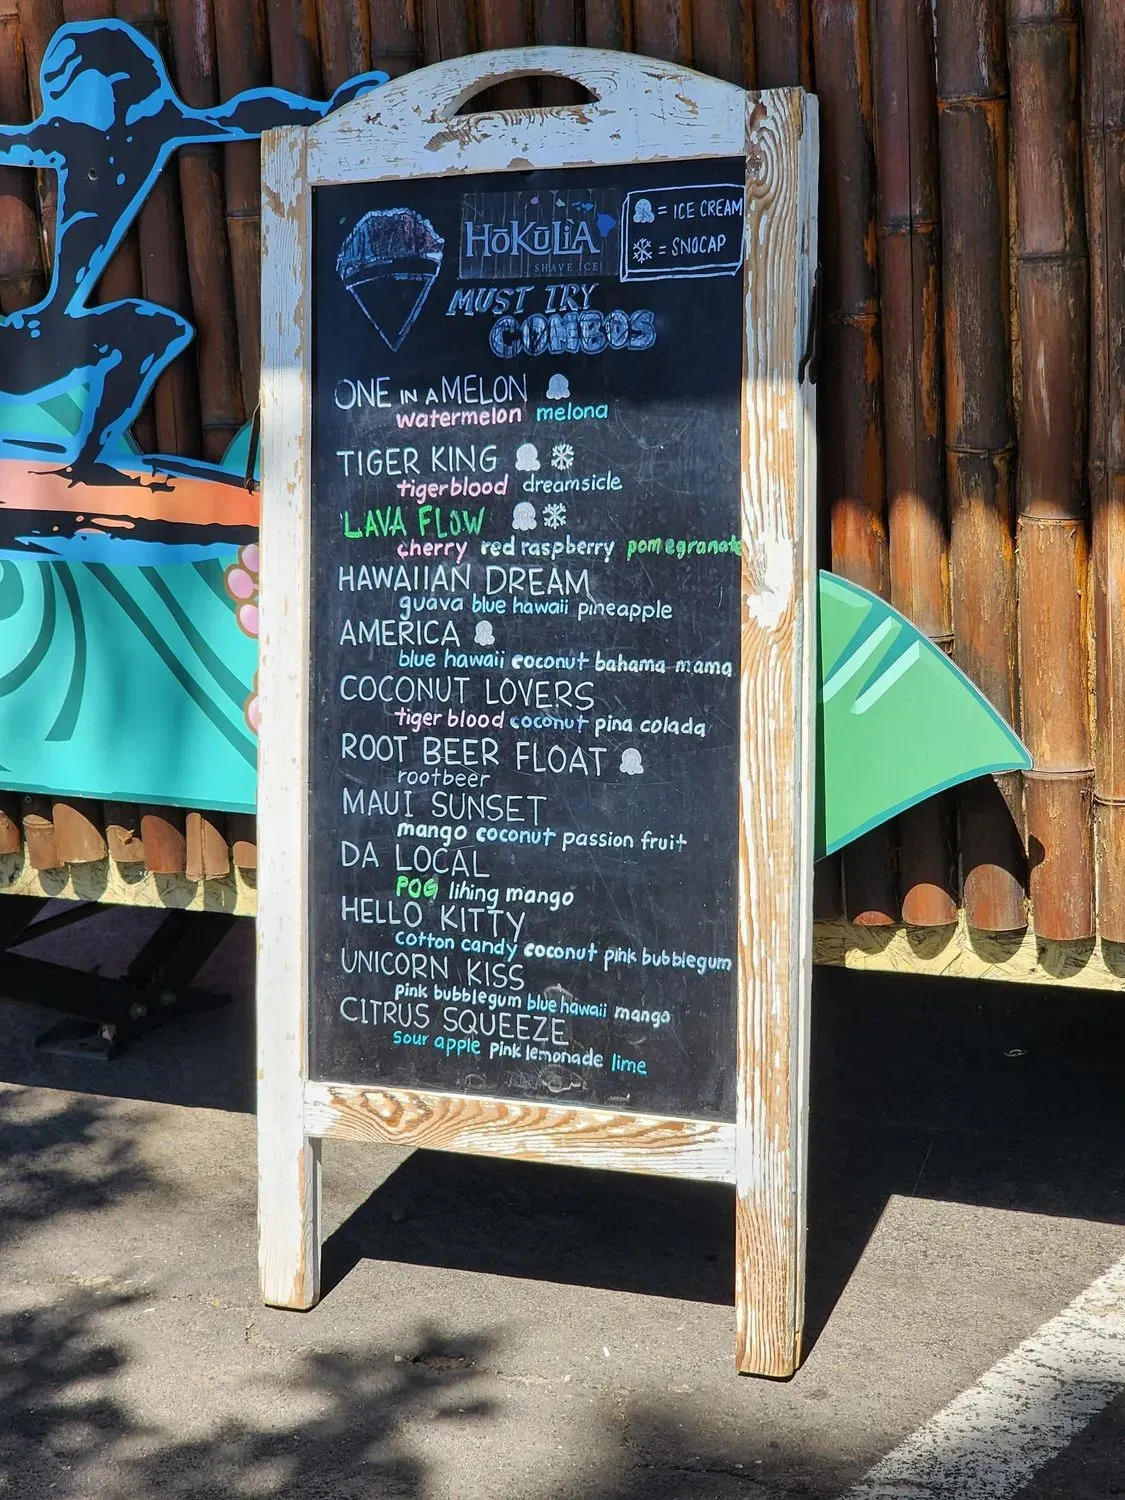 HōKūLiA
SHAVE ICE
= ICE CREAM
= SNOCAP
MUST TRY
COMBOS
ONE IN A MELON
watermelon melona
TIGER KING
tigerblood dreamsicle
LAVA FLOW
cherry red raspberry pomegranate
HAWAIIAN DREAM
guava blue hawaii pineapple
AMERICA
blue hawaii coconut bahama mama
COCONUT LOVERS
tiger blood coconut pina colada
ROOT BEER FLOAT
rootbeer
MAUI SUNSET
mango coconut passion fruit
DA LOCAL
POG lihing mango
HELLO KITTY
cotton candy coconut pink bubblegum
UNICORN KISS
pink bubblegum blue hawaii mango
CITRUS SQUEEZE
sour apple pink lemonade lime